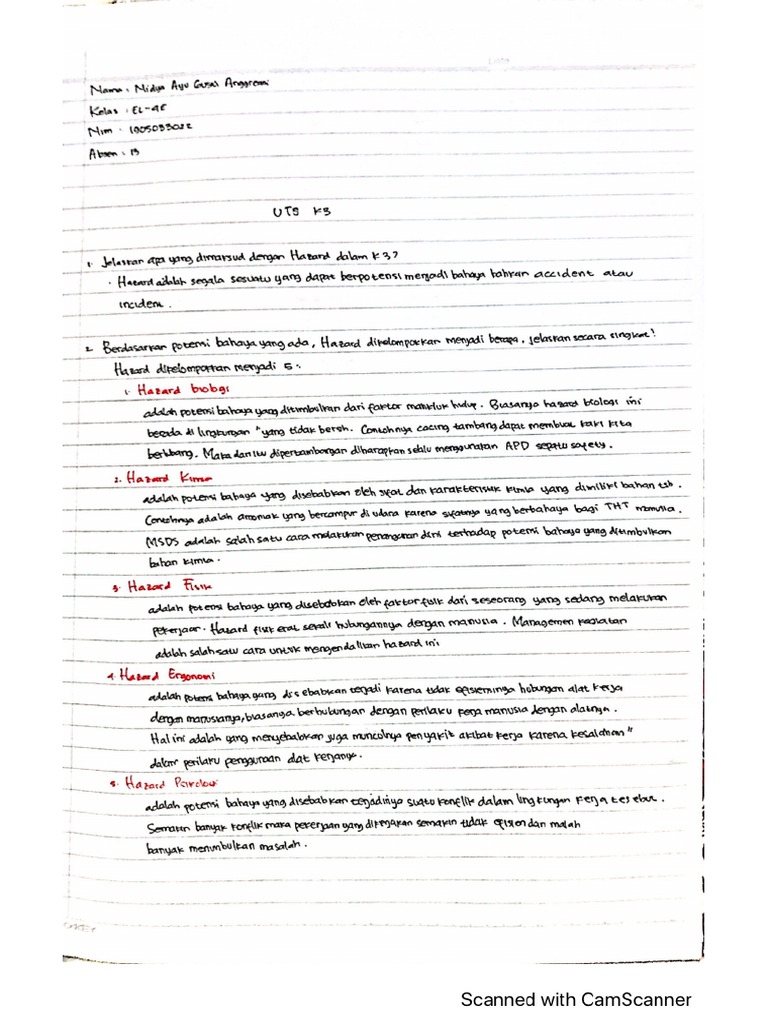 Nama : Nidya Ayu Gusni Anggreani
Kelas : EL-4E
Nim : 1905033022
Absen : 13
UTS K3
1. Jelaskan apa yang dimaksud dengan Hazard dalam K3?
· Hazard adalah segala sesuatu yang dapat berpotensi menjadi bahaya bahkan accident atau
incident.
2. Berdasarkan potensi bahaya yang ada, Hazard dikelompokkan menjadi berapa, jelaskan secara singkat!
Hazard dikelompokkan menjadi 5 :
1. Hazard biologi
adalah potensi bahaya yang ditimbulkan dari faktor makhluk hidup. Biasanya hazard biologi ini
berada di lingkungan " yang tidak bersih. Contohnya cacing tambang dapat membuat kaki kita
berlubang. Maka dari itu dipertambangan diharapkan selalu menggunakan APD sepatu safety.
2. Hazard Kimia
adalah potensi bahaya yang disebabkan oleh sifat dan karakteristik kimia yang dimiliki bahan tsb.
Contohnya adalah amoniak yang bercampur di udara karena sifatnya yang berbahaya bagi THT manusia.
MSDS adalah salah satu cara melakukan penanganan dini terhadap potensi bahaya yang ditimbulkan
bahan kimia.
3. Hazard Fisik
adalah potensi bahaya yang disebabkan oleh faktor fisik dari seseorang yang sedang melakukan
pekerjaan. Hazard fisik erat sekali hubungannya dengan manusia. Managemen kegiatan
adalah salah satu cara untuk mengendalikan hazard ini
4. Hazard Ergonomi
adalah potensi bahaya yang disebabkan terjadi karena tidak efisiennya hubungan alat kerja
dengan manusianya, biasanya berhubungan dengan perilaku kerja manusia dengan alatnya.
Hal ini adalah yang menyebabkan juga munculnya penyakit akibat kerja karena kesalahan"
dalam perilaku penggunaan alat kerjanya.
5. Hazard Psikologi
adalah potensi bahaya yang disebabkan terjadinya suatu konflik dalam lingkungan kerja tersebut.
Semakin banyak konflik maka pekerjaan yang dikerjakan semakin tidak efisien dan malah
banyak menimbulkan masalah.
Scanned with CamScanner